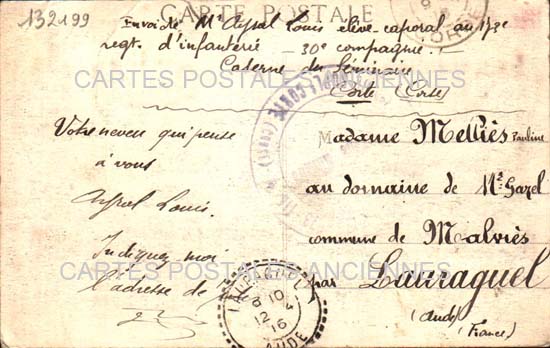 132199
CARTE POSTALE
Envoi de Mr Ayral Louis élève caporal au 173e
regt. d'infanterie - 30e compagnie.
Caserne du Séminaire
Corte (Corse)
CARTES POSTALES ANCIENNES
Votre neveu qui pense
à vous
Ayral Louis.
Indiquez moi
l'adresse de
Madame Melliès Pauline
au domaine de Mr Gazel
commune de Malviès
par Lauraguel
(Aude)
(France)
CARTES POSTALES ANCIENNES
8 10
12 4
16
AUDE